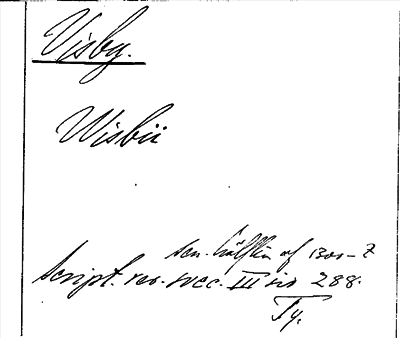 Visby.
Wisbii
sen. hälften af 1300-t
Script. rer. svec. III sid 288.
Ty.